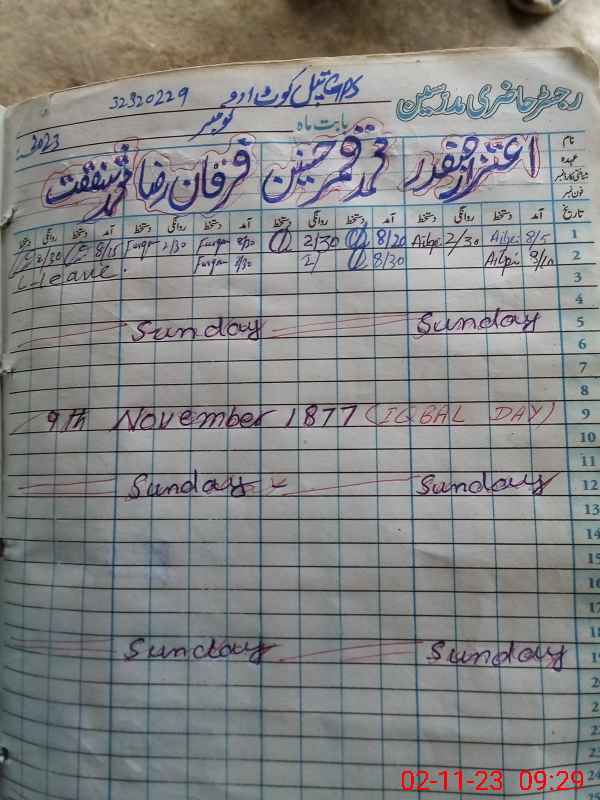 رجسٹر حاضری مدرسین GPS بستیل کوٹ ادو 32320229
بابت ماہ نومبر 2023ء
نام اعتزاز صفدر محمد قمر حسنین فرقان رضا محمد شفقت
عہدہ
شناختی کارڈ نمبر
فون نمبر
تاریخ آمد دستخط روانگی دستخط آمد دستخط روانگی دستخط آمد دستخط روانگی دستخط آمد دستخط روانگی دستخط
1 8/5 2/30 8/20 2/30 Furqan 2/30 Furqan 8/15 2/30
2 8/10 8/30 2/ Furqan 8/30 C-leave.
3
4
5 Sunday Sunday
6
7
8
9 9th November 1877 (IQBAL DAY)
10
11
12 Sunday Sunday
13
14
15
16
17
18
19 Sunday Sunday
20
21
22
23
24
25
02-11-23 09:29